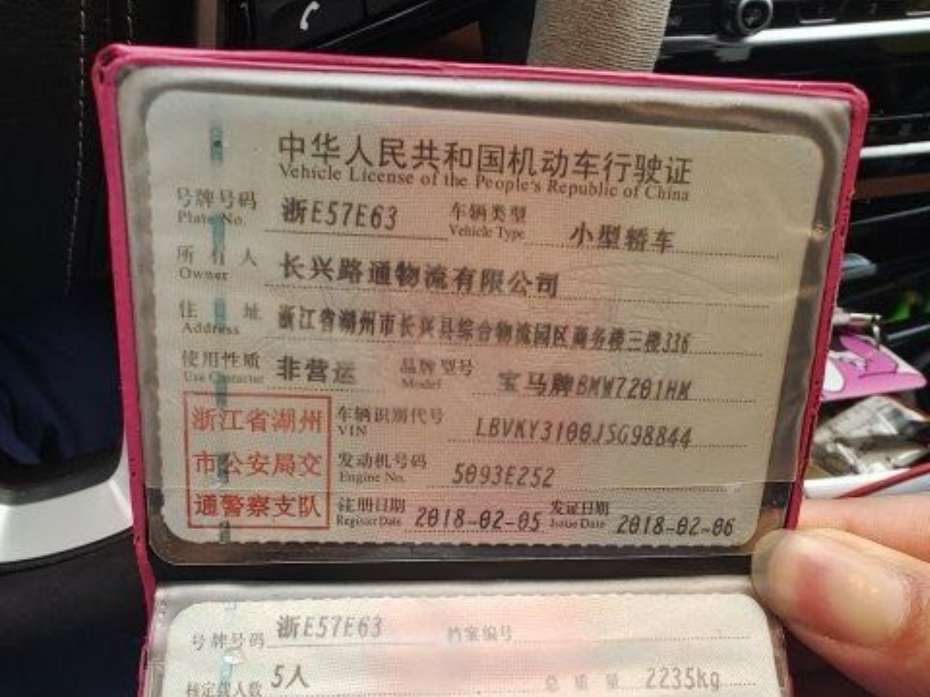 中华人民共和国机动车行驶证
Vehicle License of the People's Republic of China
号牌号码 浙E57E63 车辆类型 小型轿车
Plate No. Vehicle Type
所有人 长兴路通物流有限公司
Owner
住址 浙江省湖州市长兴县综合物流园区商务楼三楼336
Address
使用性质 非营运 品牌型号 宝马牌BMW7201HM
Use Character Model
浙江省湖州
市公安局交
通警察支队
车辆识别代号 LBVKY3100JSG98844
VIN
发动机号码 5093E252
Engine No.
注册日期 2018-02-05 发证日期 2018-02-06
Register Date Issue Date
号牌号码 浙E57E63 档案编号
核定载人数 5人 总质量 2235kg